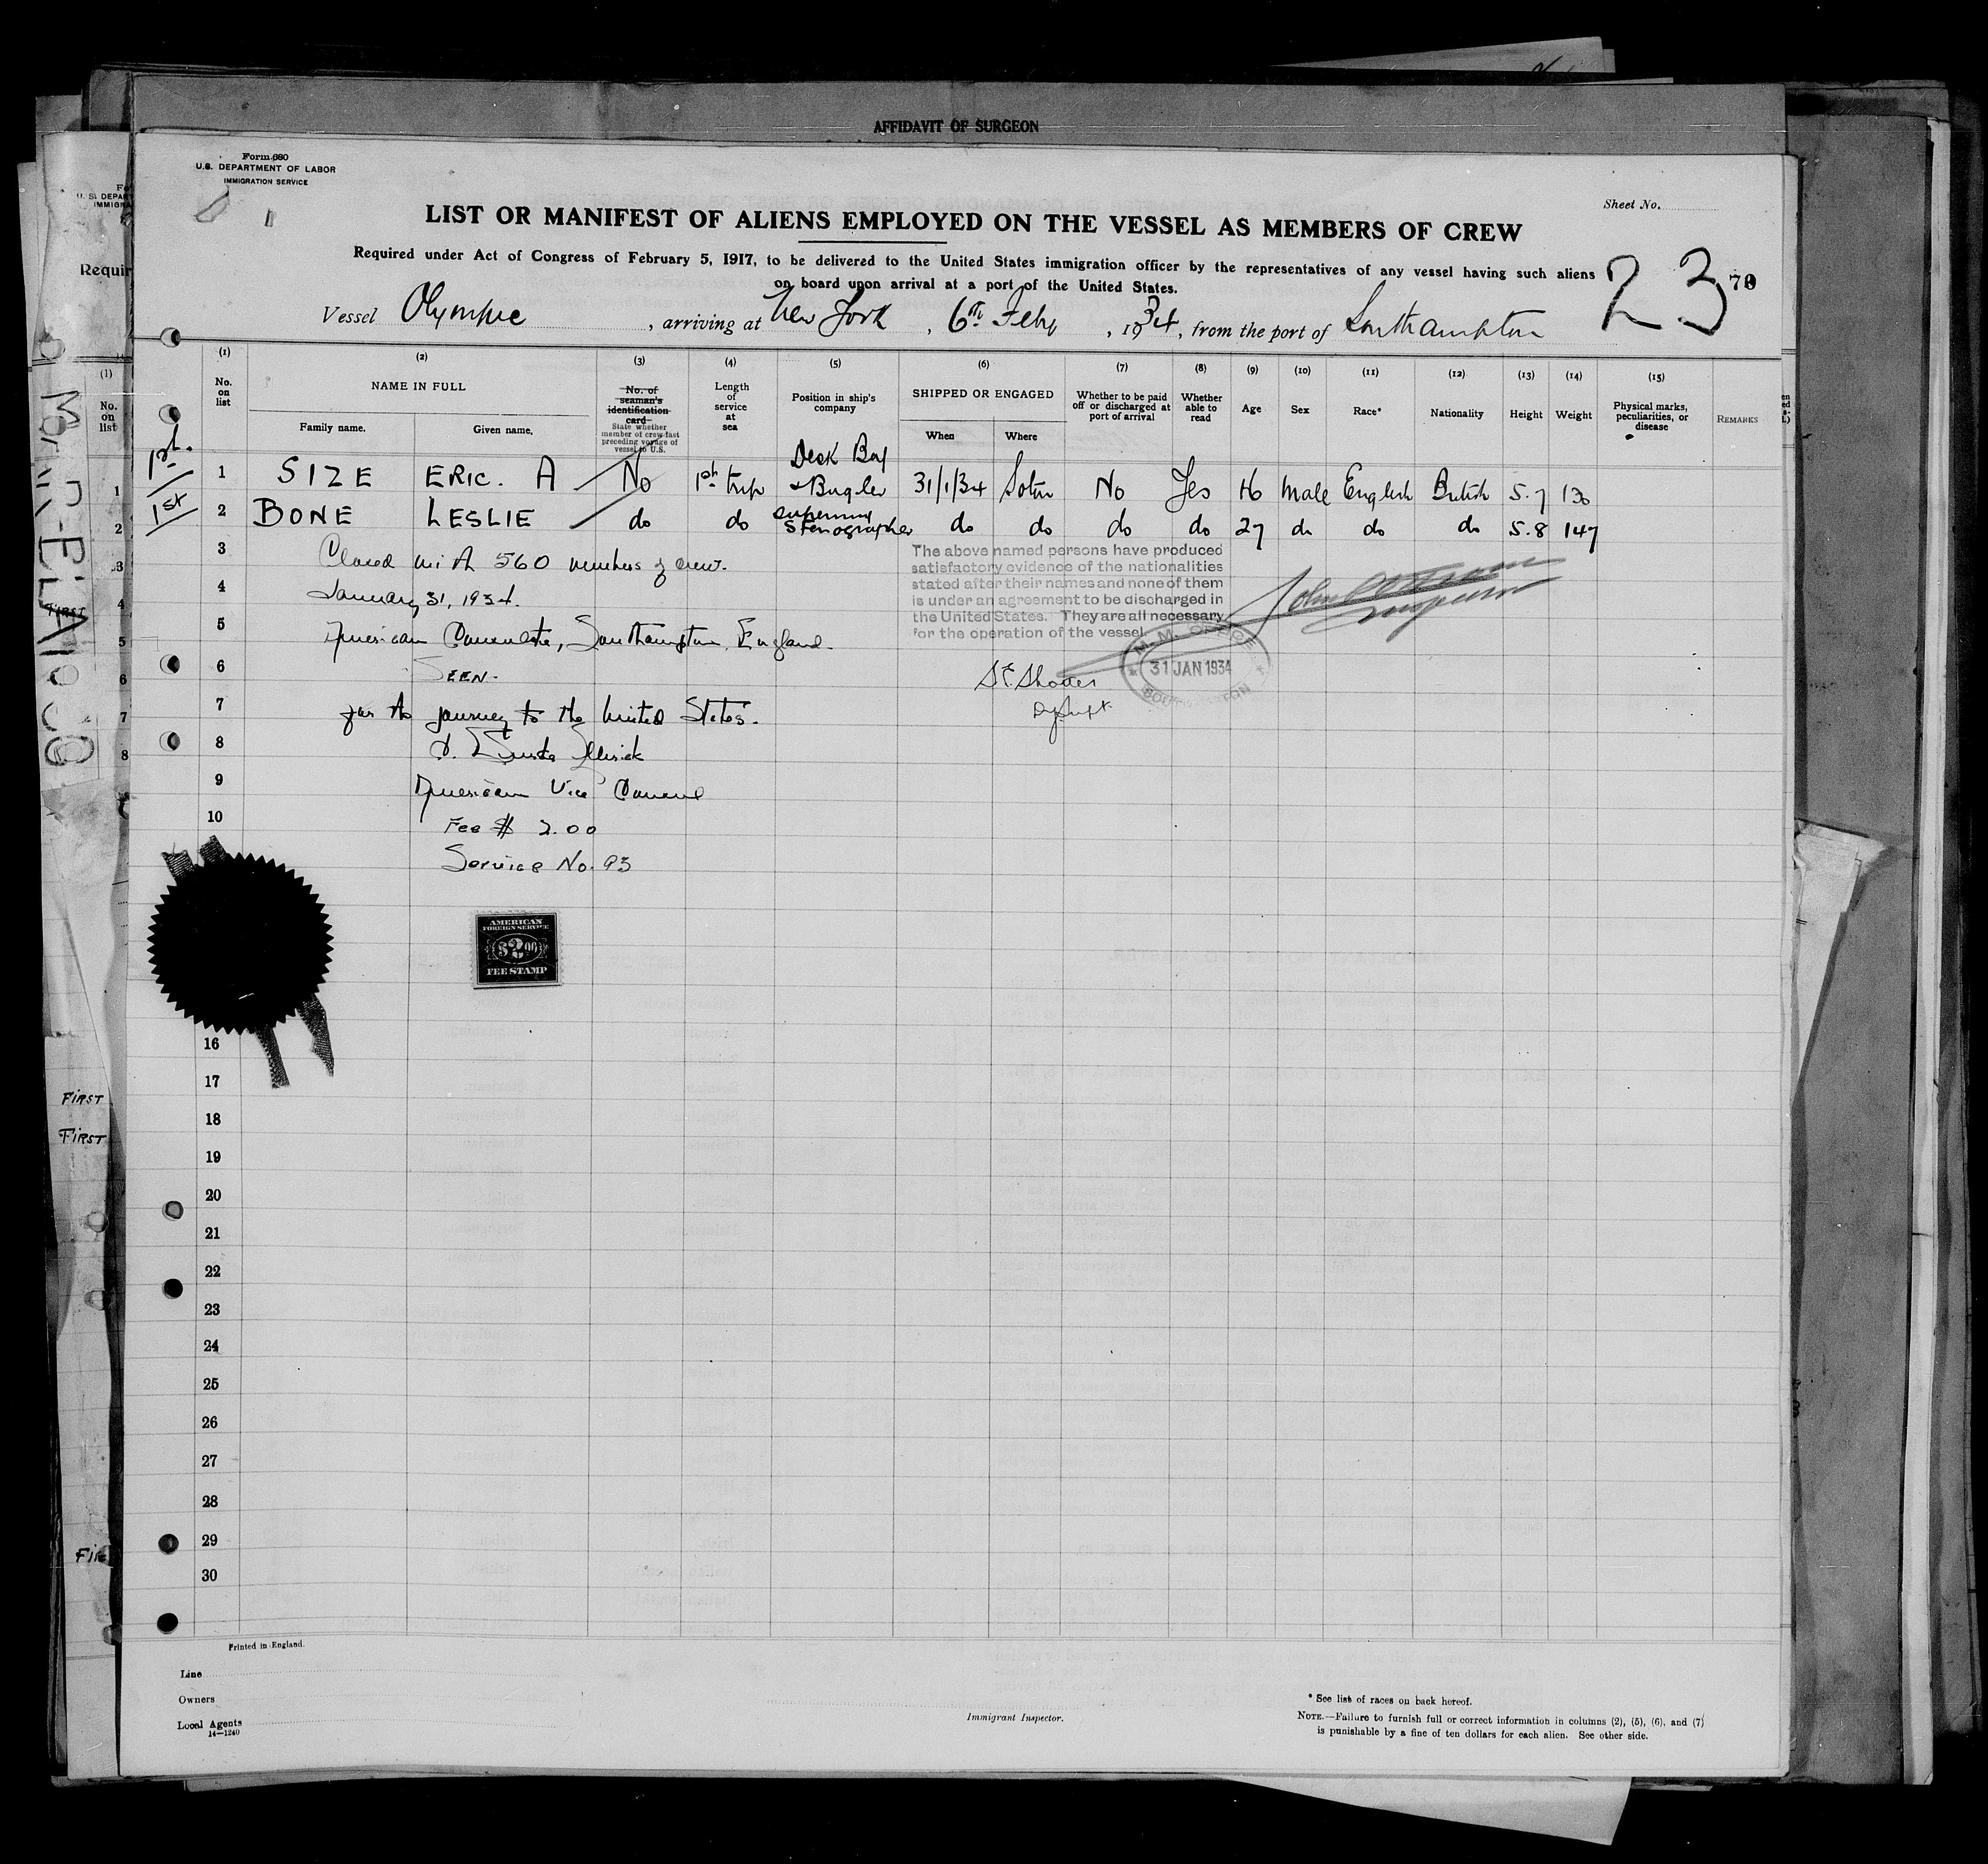 AFFIDAVIT OF SURGEON
Form 680
U.S. DEPARTMENT OF LABOR
IMMIGRATION SERVICE
Sheet No.
LIST OR MANIFEST OF ALIENS EMPLOYED ON THE VESSEL AS MEMBERS OF CREW
Required under Act of Congress of February 5, 1917, to be delivered to the United States immigration officer by the representatives of any vessel having such aliens
on board upon arrival at a port of the United States.
23
Vessel Olympic, arriving at New York, 6th Feby, 1934, from the port of Southampton
(1) (2) (3) (4) (5) (6) (7) (8) (9) (10) (11) (12) (13) (14) (15)
No. on list
NAME IN FULL
Family name. Given name.
No. of seaman's identification card
State whether member of crew last preceding voyage of vessel to U.S.
Length of service at sea
Position in ship's company
SHIPPED OR ENGAGED
When Where
Whether to be paid off or discharged at port of arrival
Whether able to read
Age Sex Race* Nationality Height Weight
Physical marks, peculiarities, or disease
REMARKS
1st 1 SIZE ERIC. A No 1st trip Deck Boy & Bugler 31/1/34 Soton No Yes 16 Male English British 5.7 130
1st 2 BONE LESLIE do do Supernumy Stenographer do do do do 27 do do do 5.8 147
3 Closed with 560 members of crew.
4 January 31, 1934.
5 American Consulate, Southampton, England.
6 SEEN.
7 for the journey to the United States.
8
9 American Vice Consul
10 Fee $ 2.00
Service No. 93
The above named persons have produced
satisfactory evidence of the nationalities
stated after their names and none of them
is under an agreement to be discharged in
the United States. They are all necessary
for the operation of the vessel
M.M. OFFICE
31 JAN 1934
SOUTHAMPTON
AMERICAN
FOREIGN SERVICE
$2.00
FEE STAMP
16
17
18
19
20
21
22
23
24
25
26
27
28
29
30
FIRST
FIRST
Printed in England.
Line
Owners
Local Agents
14—1240
Immigrant Inspector.
* See list of races on back hereof.
NOTE.—Failure to furnish full or correct information in columns (2), (5), (6), and (7)
is punishable by a fine of ten dollars for each alien. See other side.